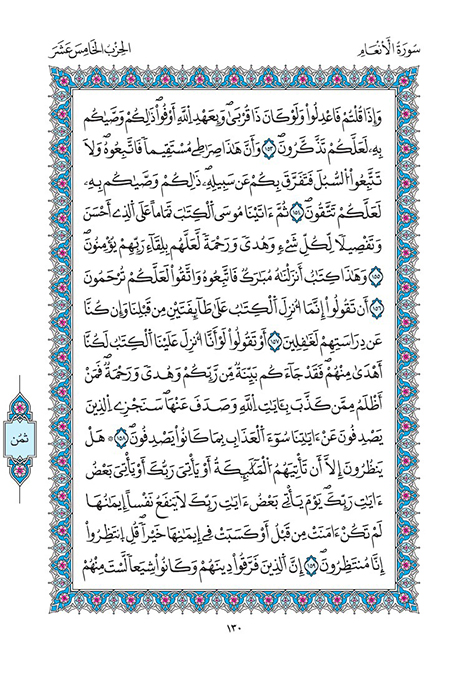 سورة الأنعام
الحزب الخامس عشر
وَإِذَا قُلْتُمْ فَاعْدِلُواْ وَلَوْ كَانَ ذَا قُرْبَىٰ وَبِعَهْدِ اِللَّهِ أَوْفُواْ ذَٰلِكُمْ وَصَّيٰكُم
بِهِۦ لَعَلَّكُمْ تَذَّكَّرُونَ ١٥٣ وَأَنَّ هَٰذَا صِرَٰطِے مُسْتَقِيماً فَاتَّبِعُوهُ وَلَا
تَتَّبِعُواْ اُلسُّبُلَ فَتَفَرَّقَ بِكُمْ عَن سَبِيلِهِۦ ذَٰلِكُمْ وَصَّيٰكُم بِهِۦ
لَعَلَّكُمْ تَتَّقُونَ ١٥٤ ثُمَّ ءَاتَيْنَا مُوسَى اَلْكِتَٰبَ تَمَاماً عَلَى اَلذِےٓ أَحْسَنَ
وَتَفْصِيلًا لِّكُلِّ شَےْءٖ وَهُدىً وَرَحْمَةً لَّعَلَّهُم بِلِقَآءِ رَبِّهِمْ يُؤْمِنُونَ
١٥٥ وَهَٰذَا كِتَٰبٌ أَنزَلْنَٰهُ مُبَٰرَكٌ فَاتَّبِعُوهُ وَاتَّقُواْ لَعَلَّكُمْ تُرْحَمُونَ
١٥٦ أَن تَقُولُوٓاْ إِنَّمَآ أُنزِلَ اَلْكِتَٰبُ عَلَىٰ طَآئِفَتَيْنِ مِن قَبْلِنَا وَإِن كُنَّا
عَن دِرَاسَتِهِمْ لَغَٰفِلِينَ ١٥٧ أَوْ تَقُولُواْ لَوَ اَنَّآ أُنزِلَ عَلَيْنَا اَلْكِتَٰبُ لَكُنَّآ
أَهْدَىٰ مِنْهُمْ فَقَدْ جَآءَكُم بَيِّنَةٌ مِّن رَّبِّكُمْ وَهُدىً وَرَحْمَةٌ فَمَنَ
اَظْلَمُ مِمَّن كَذَّبَ بِـَٔايَٰتِ اِللَّهِ وَصَدَفَ عَنْهَا سَنَجْزِے اِلذِينَ
يَصْدِفُونَ عَنَ ـايَٰتِنَا سُوٓءَ اَلْعَذَابِ بِمَا كَانُواْ يَصْدِفُونَ ١٥٨ ۞ هَلْ
ثمن
يَنظُرُونَ إِلَّآ أَن تَأْتِيَهُمُ اُلْمَلَٰٓئِكَةُ أَوْ يَأْتِيَ رَبُّكَ أَوْ يَأْتِيَ بَعْضُ
ءَايَٰتِ رَبِّكَ يَوْمَ يَأْتِے بَعْضُ ءَايَٰتِ رَبِّكَ لَا يَنفَعُ نَفْساً اِيمَٰنُهَا
لَمْ تَكُنَ ـامَنَتْ مِن قَبْلُ أَوْ كَسَبَتْ فِےٓ إِيمَٰنِهَا خَيْراً قُلِ اِنتَظِرُوٓاْ
إِنَّا مُنتَظِرُونَ ١٥٩ إِنَّ اَلذِينَ فَرَّقُواْ دِينَهُمْ وَكَانُواْ شِيَعاً لَّسْتَ مِنْهُمْ
١٣٠